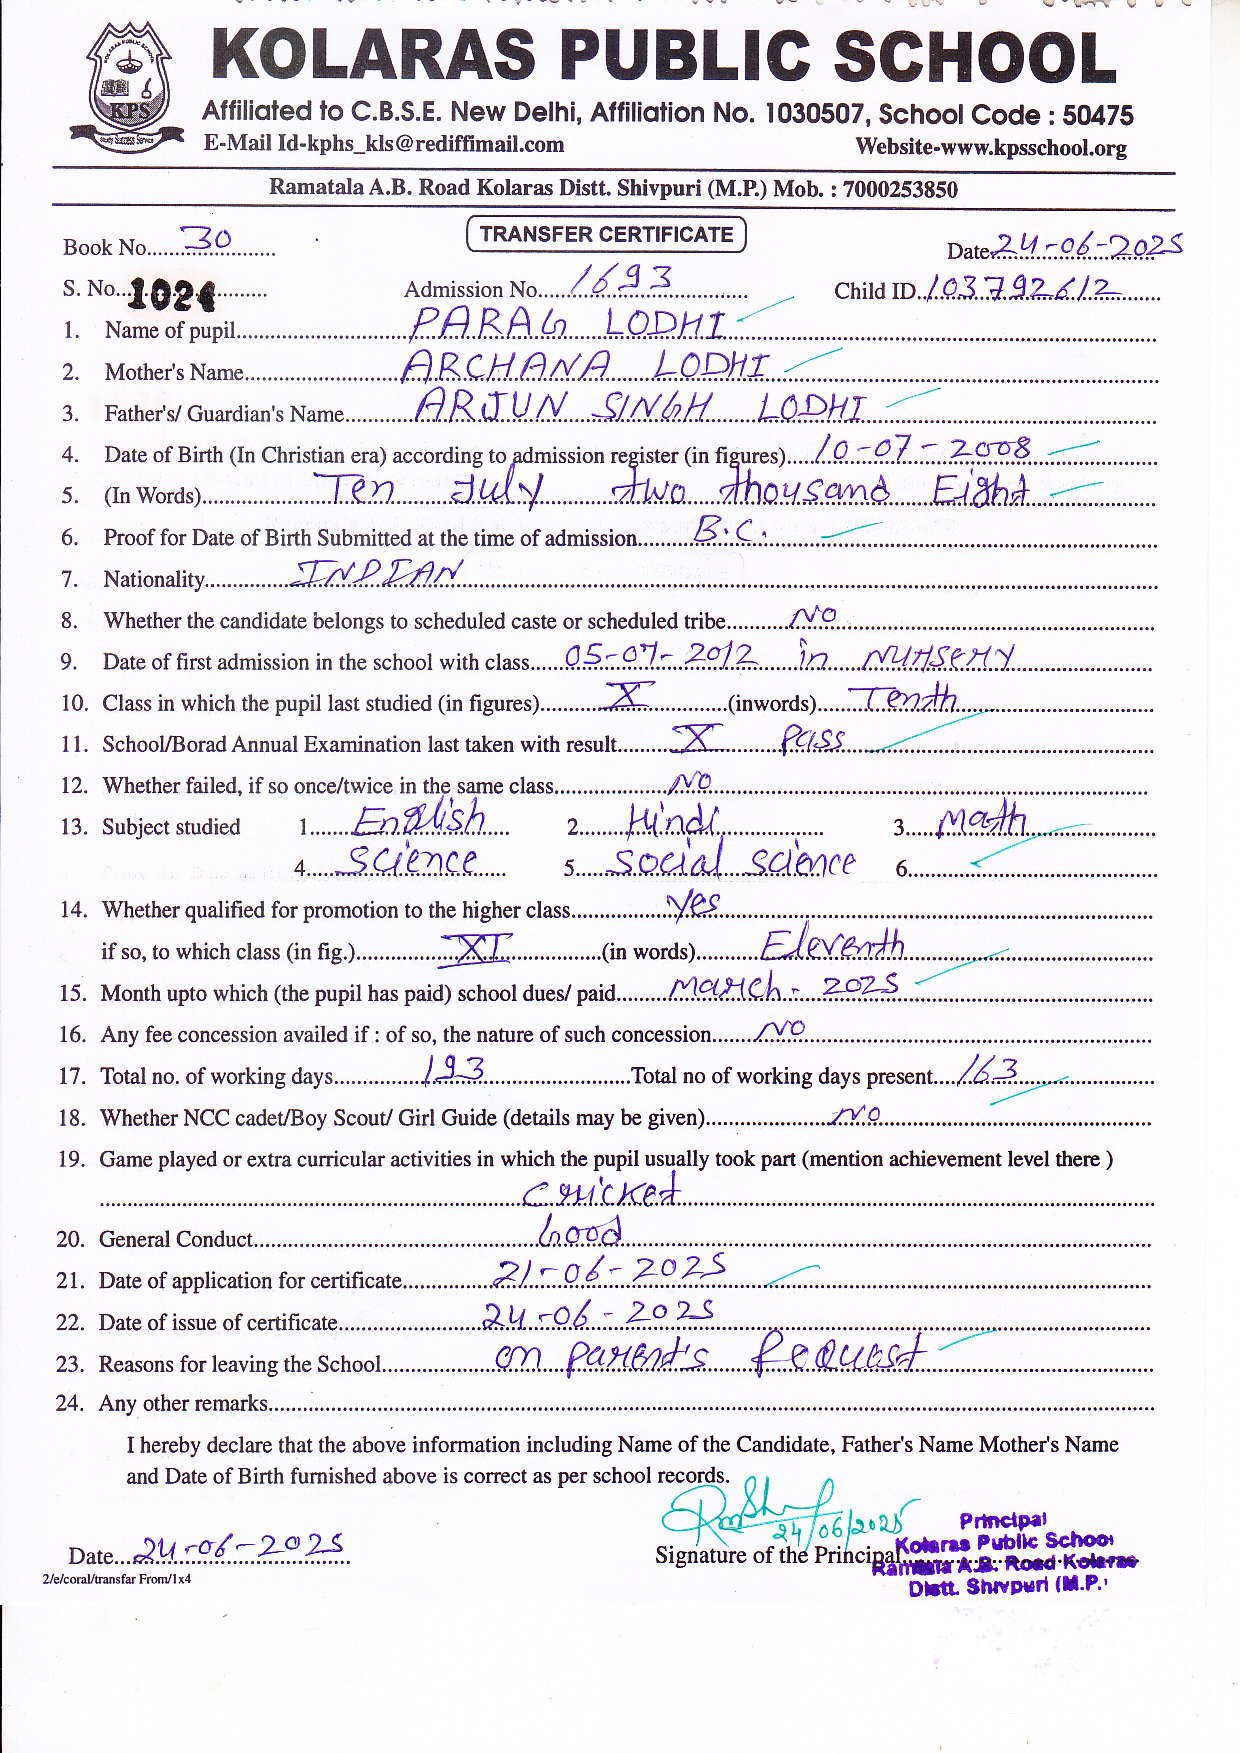 KOLARAS PUBLIC SCHOOL
Affiliated to C.B.S.E. New Delhi, Affiliation No. 1030507, School Code : 50475
E-Mail Id-kphs_kls@rediffimail.com Website-www.kpsschool.org
KPS
Ramatala A.B. Road Kolaras Distt. Shivpuri (M.P.) Mob. : 7000253850
Book No. 30 TRANSFER CERTIFICATE Date 24-06-2025
S. No. 1024 Admission No. 1693 Child ID. 103792612
1. Name of pupil PARAG LODHI
2. Mother's Name ARCHANA LODHI
3. Father's/ Guardian's Name ARJUN SINGH LODHI
4. Date of Birth (In Christian era) according to admission register (in figures) 10-07-2008
5. (In Words) Ten July two thousand Eight
6. Proof for Date of Birth Submitted at the time of admission B.C.
7. Nationality INDIAN
8. Whether the candidate belongs to scheduled caste or scheduled tribe NO
9. Date of first admission in the school with class 05-07-2012 in NURSERY
10. Class in which the pupil last studied (in figures) X (inwords) Tenth
11. School/Borad Annual Examination last taken with result X Pass
12. Whether failed, if so once/twice in the same class NO
13. Subject studied 1 English 2 Hindi 3 Math
4 Science 5 Social Science 6
14. Whether qualified for promotion to the higher class yes
if so, to which class (in fig.) XI (in words) Eleventh
15. Month upto which (the pupil has paid) school dues/ paid March - 2025
16. Any fee concession availed if : of so, the nature of such concession NO
17. Total no. of working days 193 Total no of working days present 163
18. Whether NCC cadet/Boy Scout/ Girl Guide (details may be given) NO
19. Game played or extra curricular activities in which the pupil usually took part (mention achievement level there )
Cricket
20. General Conduct Good
21. Date of application for certificate 21-06-2025
22. Date of issue of certificate 24-06-2025
23. Reasons for leaving the School on parent's Request
24. Any other remarks
I hereby declare that the above information including Name of the Candidate, Father's Name Mother's Name
and Date of Birth furnished above is correct as per school records.
24/06/2025
Date 24-06-2025 Signature of the Principal
Principal
Kolaras Public School
Ramtala A.B. Road Kolaras
Distt. Shivpuri (M.P.
2/e/coral/transfar From/1x4